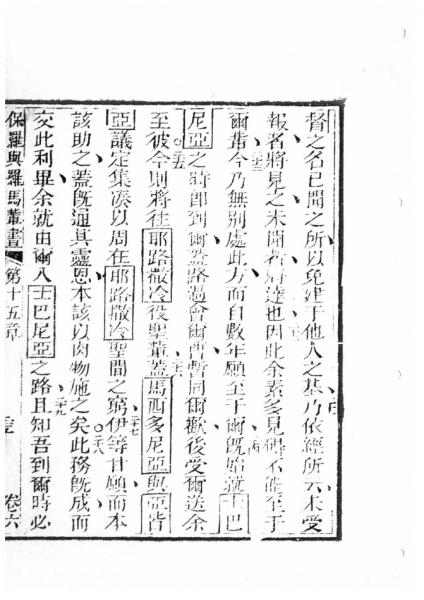 督之名已聞之所以免建于他人之基乃依經所云未受
報者將見之未聞者將達也因此余素多見碍不能至于
爾輩今乃無別處此方而自數年願至于爾旣始就士巴
尼亞之時卽到爾蓋路過會爾曹暫同爾歡後受爾送余
至彼今則將往耶路撒冷役聖輩蓋馬西多尼亞與亞皆
亞議定集湊以周在耶路撒冷聖間之窮伊等甘願而本
該助之蓋旣通其靈恩本該以肉物施之矣此務旣成而
交此利畢余就由爾入士巴尼亞之路且知吾到爾時必
保羅與羅馬輩書 第十五章 卷六
二十
二三
二四
二五
二六
二七
二八
二九